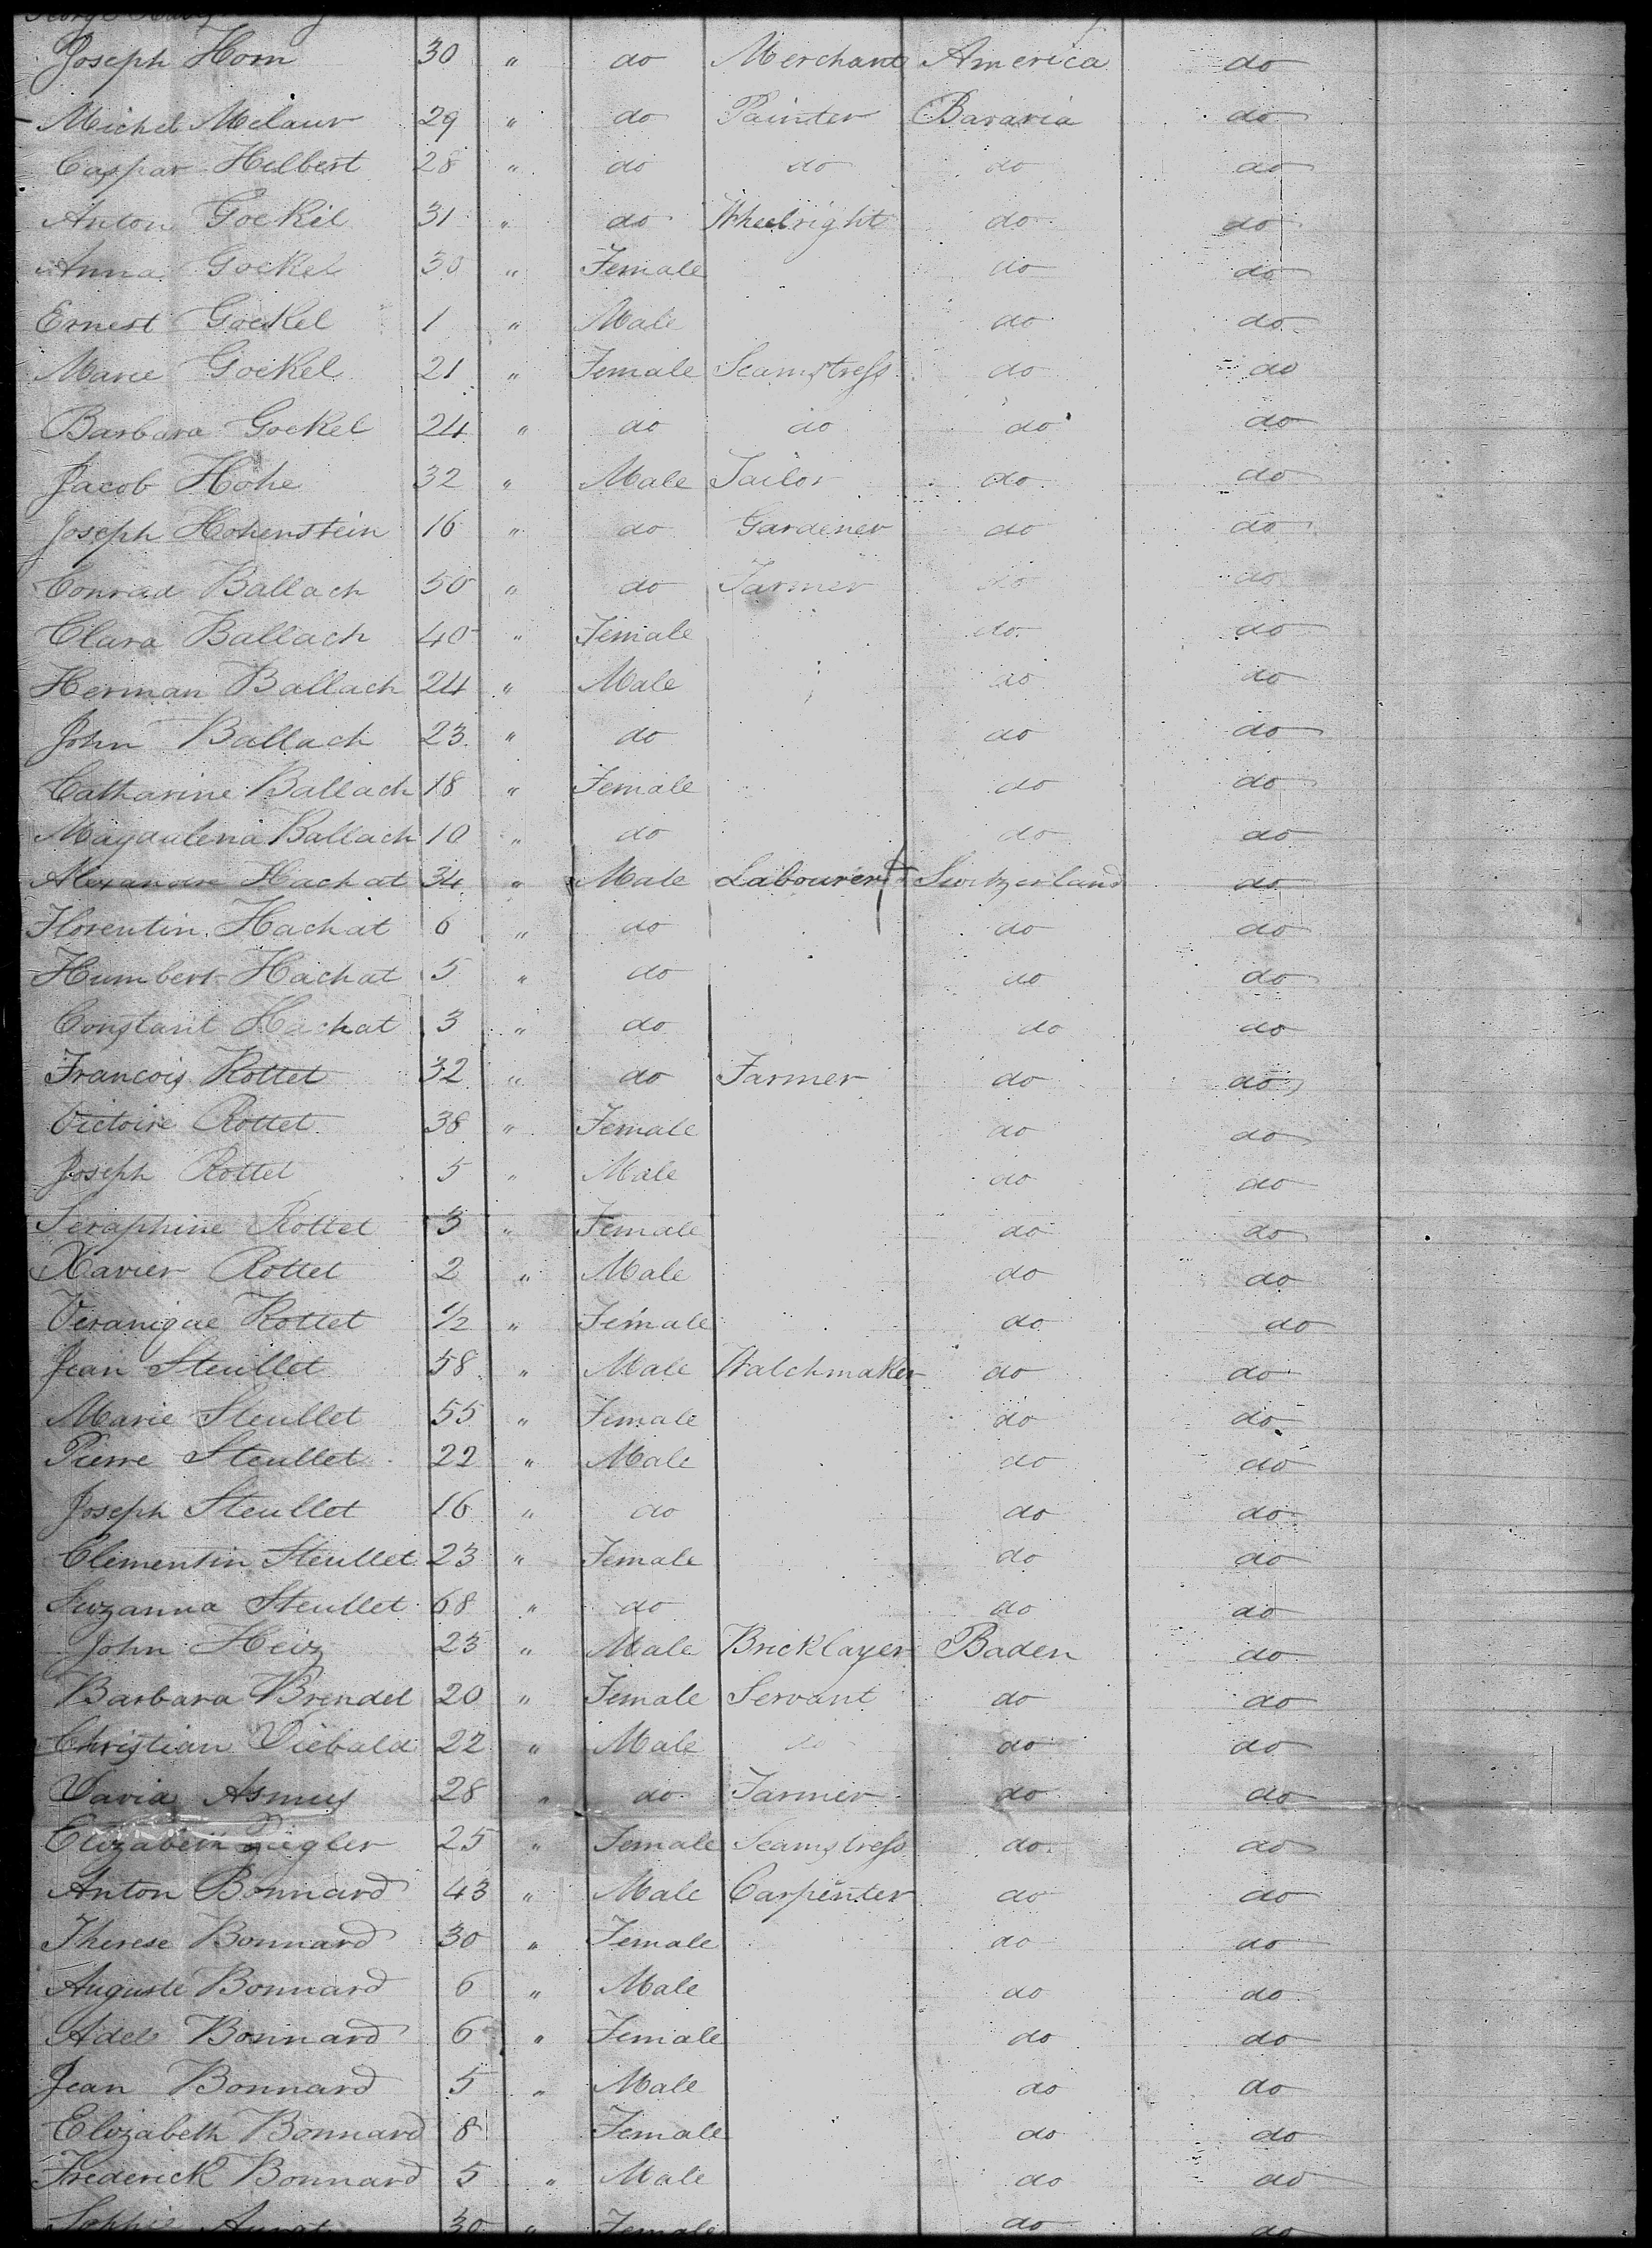 Joseph Horn 30 " do Merchant America do
Michel Melaur 29 " do Painter Bavaria do
Caspar Hilbert 28 " do do do do
Anton Goekel 31 " do Wheelright do do
Anna Goekel 30 " Female do do
Ernest Goekel 1 " Male do do
Marie Goekel 21 " Female Seamstress do do
Barbara Goekel 24 " do do do do
Jacob Höhe 32 " Male Tailor do do
Joseph Hohenstein 16 " do Gardener do do
Conrad Ballach 50 " do Farmer do do
Clara Ballach 40 " Female do do
Herman Ballach 24 " Male do do
John Ballach 23 " do do do
Catharine Ballach 18 " Female do do
Magdalena Ballach 10 " do do do
Alexandre Hachat 34 " Male Labourer Switzerland do
Florentin Hachat 6 " do do do
Humbert Hachat 5 " do do do
Constant Hachat 3 " do do do
Francois Rottet 32 " do Farmer do do
Victoire Rottet 38 " Female do do
Joseph Rottet 5 " Male do do
Seraphine Rottet 3 " Female do do
Xavier Rottet 2 " Male do do
Veranique Rottet 1/2 " Female do do
Jean Steullet 58 " Male Watchmaker do do
Marie Steullet 55 " Female do do
Pierre Steullet 22 " Male do do
Joseph Steullet 16 " do do do
Clementin Steullet 23 " Female do do
Suzanna Steullet 68 " do do do
John Heiz 23 " Male Bricklayer Baden do
Barbara Brendel 20 " Female Servant do do
Christian Diebald 22 " Male do do do
David Asmus 28 " do Farmer do do
Elizabeth Ziegler 25 " Female Seamstress do do
Anton Bonnard 43 " Male Carpenter do do
Therese Bonnard 30 " Female do do
Auguste Bonnard 6 " Male do do
Adele Bonnard 6 " Female do do
Jean Bonnard 5 " Male do do
Elizabeth Bonnard 8 Female do do
Frederick Bonnard 5 " Male do do
Sophie 30 " Female do do